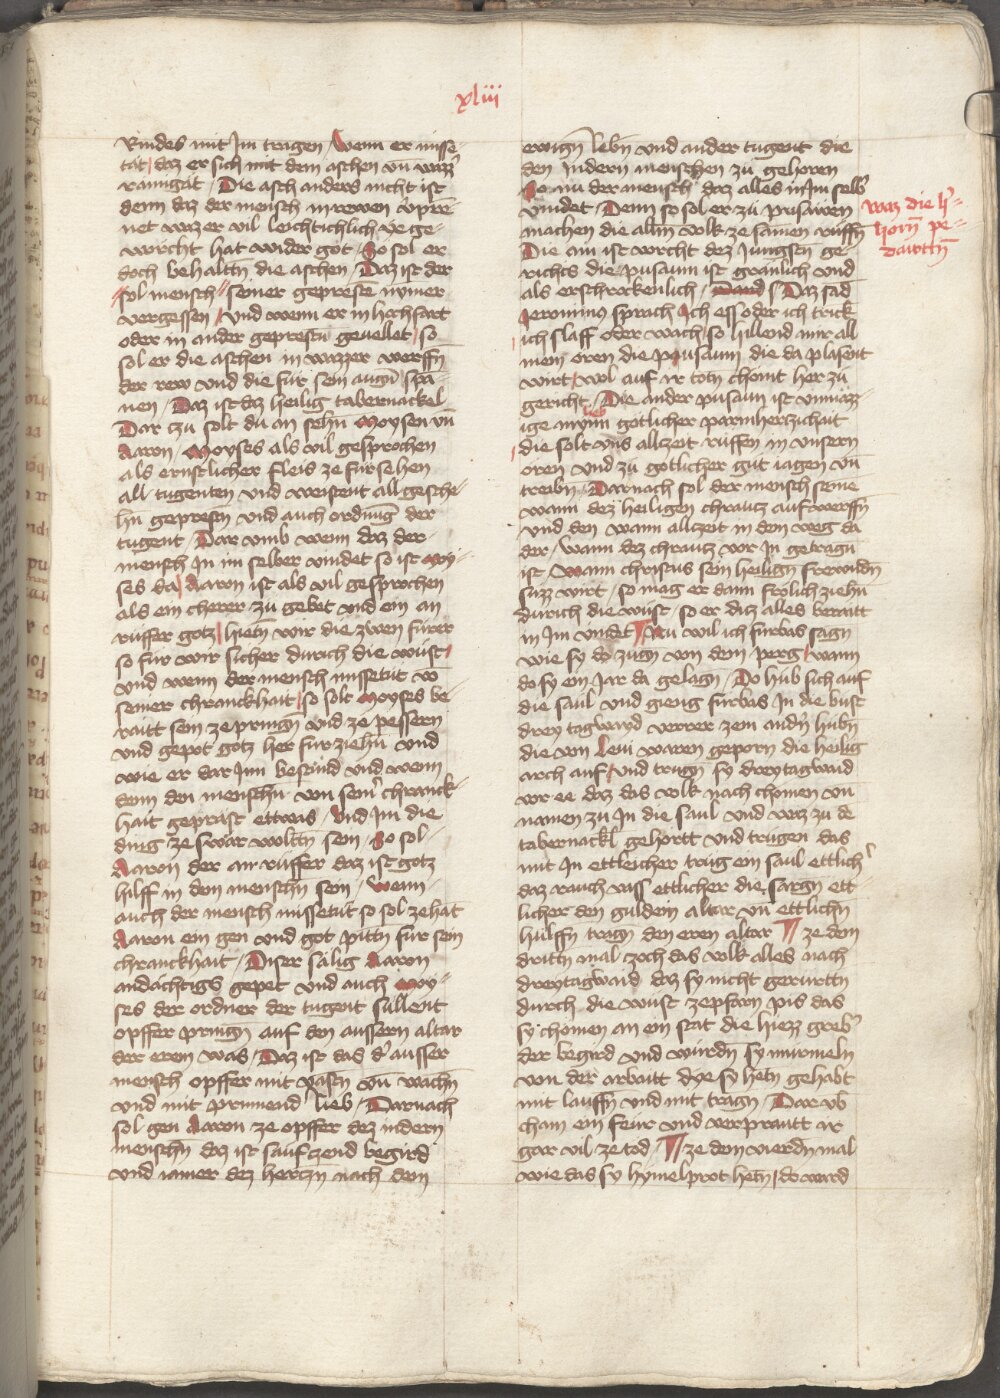 xliii
Rindes mit Jm tragen / Wenn er misse-
tat / daz er sich mit dem aschen vn̄ wazz͛
rainigat / Die asch anders nicht ist
denn daz der mensch in rewen v̓pren̄-
net waz er vil leichtichlich ye ge-
wircht hat wider got / So sol er
doch behaltn̄ die aschen / Daz ist der
sol mensch seiner gepreste nymer
vergessen / Vnd wenn er in hochfart
oder in ander geprestn̄ geuellet / so
sol er die aschen in wazzer werffn̄
der rew vnd die für sein augn̄ spa-
nen / Daz ist daz heilig tabernackel
Dar czu solt du an sehn̄ Moysen vn̄
Aaron / Moyses als vil gesprochen
als ernstlicher fleis ze fürsehen
all tugenten vnd weistent all gesche-
hn̄ geprestn̄ vnd auch ordnu̅g der
tugent / Dar vmb wenn daz der
mensch Jn im selber vindet so ist Moy-
ses da / Aaron ist als vil gesprochen
als ein cherer zu gebet vnd ein an
rüffer gotz / hietn̄ wir die zwen fürer
so für wir sicher durich die wüst /
vnd wenn der mensch missetüt vo̅
seiner chranckhait / so solt Moyses be-
raitt sein ze pringn̄ vnd ze pessern
vnd gepot gotz her fur ziehn̄ vnd
wie er dar Jnn bestünd vnd wenn
denn den menschn̄ von sein̄ chranck-
hait geprast ettwas / Vnd Jm die
ding ze swar woltn̄ sein / So sol
Aaron der an rüffer daz ist gotz
hilff in dem menschn̄ sein / Wenn
auch der mensch missetüt so sol zehat
Aaron ein gen vnd got pittn̄ fur sein
chranckhait / Diser sälig Aaron
andächtigs gepet vnd auch Moy-
ses der ordner der tugent süllent
opffer pringn̄ auf den aussern altar
der erein was / Daz ist das d͛ ausser
mensch opffer mit vastn̄ vn̄ wachn̄
vnd mit prinnend lieb / Darnach
sol gen Aaron ze opffer dez indern
menschn̄ daz ist sawfczend begird
vnd iamer dez hertzn̄ nach dem
ewign̄ lebn̄ vnd ander tugent die
den Jndern menschen zu gehoren
So nu der mensch daz alles in Jm selb͛
vindet / Denn so sol er zu pusawen
machen die allm̄ volk ze samen rüffn̄
Die ain ist vorcht dez Jungstn̄ ge-
richts die pusaun ist gräulich vnd
als erschrockenlich / David / Daz sad
Jeronim9 sprach Jch ess oder ich trick
ich slaff oder wach / so hillend mir all
mein oren die pusaun die da plasent
wirt / wol auf ir totn̄ chömt her zu
gericht / Die ander pusaun ist vnmazz-
lieb
ige mynn götlicher parmherczichait
die solt vns allzeit rüffen in vnsern
oren vnd zu götlicher gut iagen vn̄
treibn̄ / Darnach sol der mensch seine
wann dez heiligen chrautz aufwerffn̄
vnd den wann allzeit in dem weg da
der / Wann dez chrautz vor Jn getragn̄
ist / Wann christus sein heilign̄ frewndn̄
suzz wirt / so mag er dann frölich ziehn̄
durich die wüst / so er daz alles beraitt
in Jm vindet ¶ Nu wil ich fürbas sagn̄
wie sy do zugn̄ von dem perg / wann
do sy ein Jar da gelagn̄ / Do hüb sich auf
die saül vnd gieng fürbas Jn die büst
drey tagwayd verrer zem andn̄ hubn̄
die von Leui waren geporn die heilig
arch auf / Vnd trugn̄ sy dreytagwaid
vor ee daz das volk nach chomen vn̄
namen zu Jn die saul vnd waz zu de
tabernackl̄ gehört vnd trugen das
mit Jn ettleicher trug ein saul ettlich͛
daz rauch vas ettlicher die sargn̄ ett-
licher den guldein altar vn̄ ettlichn̄
hülffn̄ tragn̄ den eren altar ¶ ze dem
drittn̄ mal zoch das volk alles nach
dreytagwaid daz sy nicht gerurttn̄
durch die wüst zepfarn pis das
sy chomen an ein stat die hiezz greb͛
der begird vnd wurdn̄ sy murmeln
von der arbaitt dye sy hetn̄ gehabt
mit lauffn̄ vnd mit tragn̄ / Dar v̅b
cham ein feur vnd verprantt ir
gar vil ze tod / ¶ ze dem vierdn̄ mal
wie das sy hymelprot hetn̄ / do ward
waz die h̓-
horn̄ pe-
däwttn̄